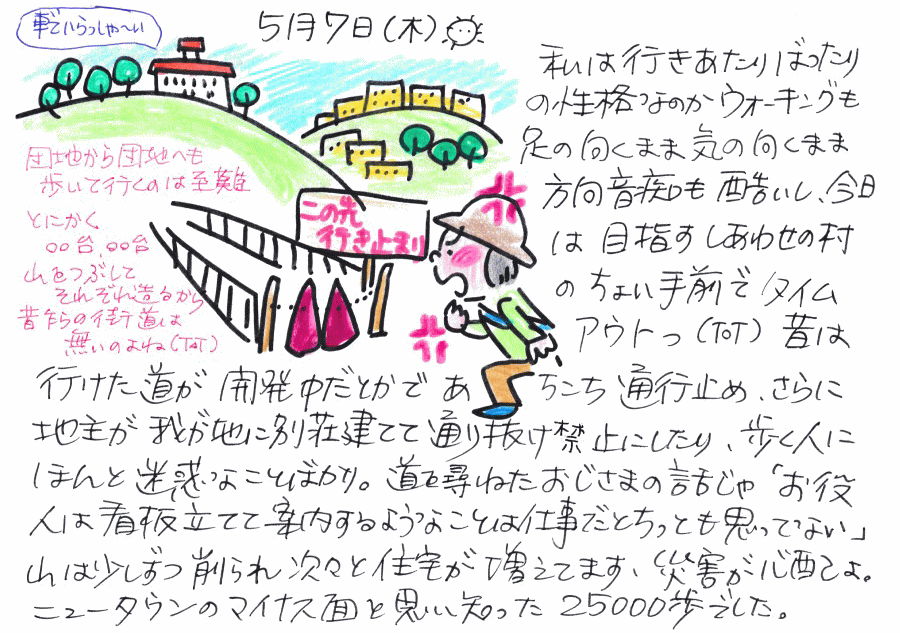 車でいらっしゃ～い
5月7日(木)
私は行きあたりばったり
の性格なのかウォーキングも
足の向くまま気の向くまま
方向音痴も酷いし、今日
は目指すしあわせの村
のちょい手前でタイム
アウトっ(ToT)昔は
団地から団地へも
歩いて行くのは至難
とにかく
○○台、○○台
山をつぶして
それぞれ造るから
昔からの街道は
無いのよね(ToT)
この先
行き止まり
行けた道が開発中だとかであちこち通行止め、さらに
地主が我が地に別荘建てて通り抜け禁止にしたり、歩く人に
ほんと迷惑なことばかり。道を尋ねたおじさまの話じゃ「お役
人は看板立てて案内するようなことは仕事だとちっとも思ってない」
山は少しずつ削られ次々と住宅が増えてます、災害が心配よ。
ニュータウンのマイナス面と思い知った25000歩でした。